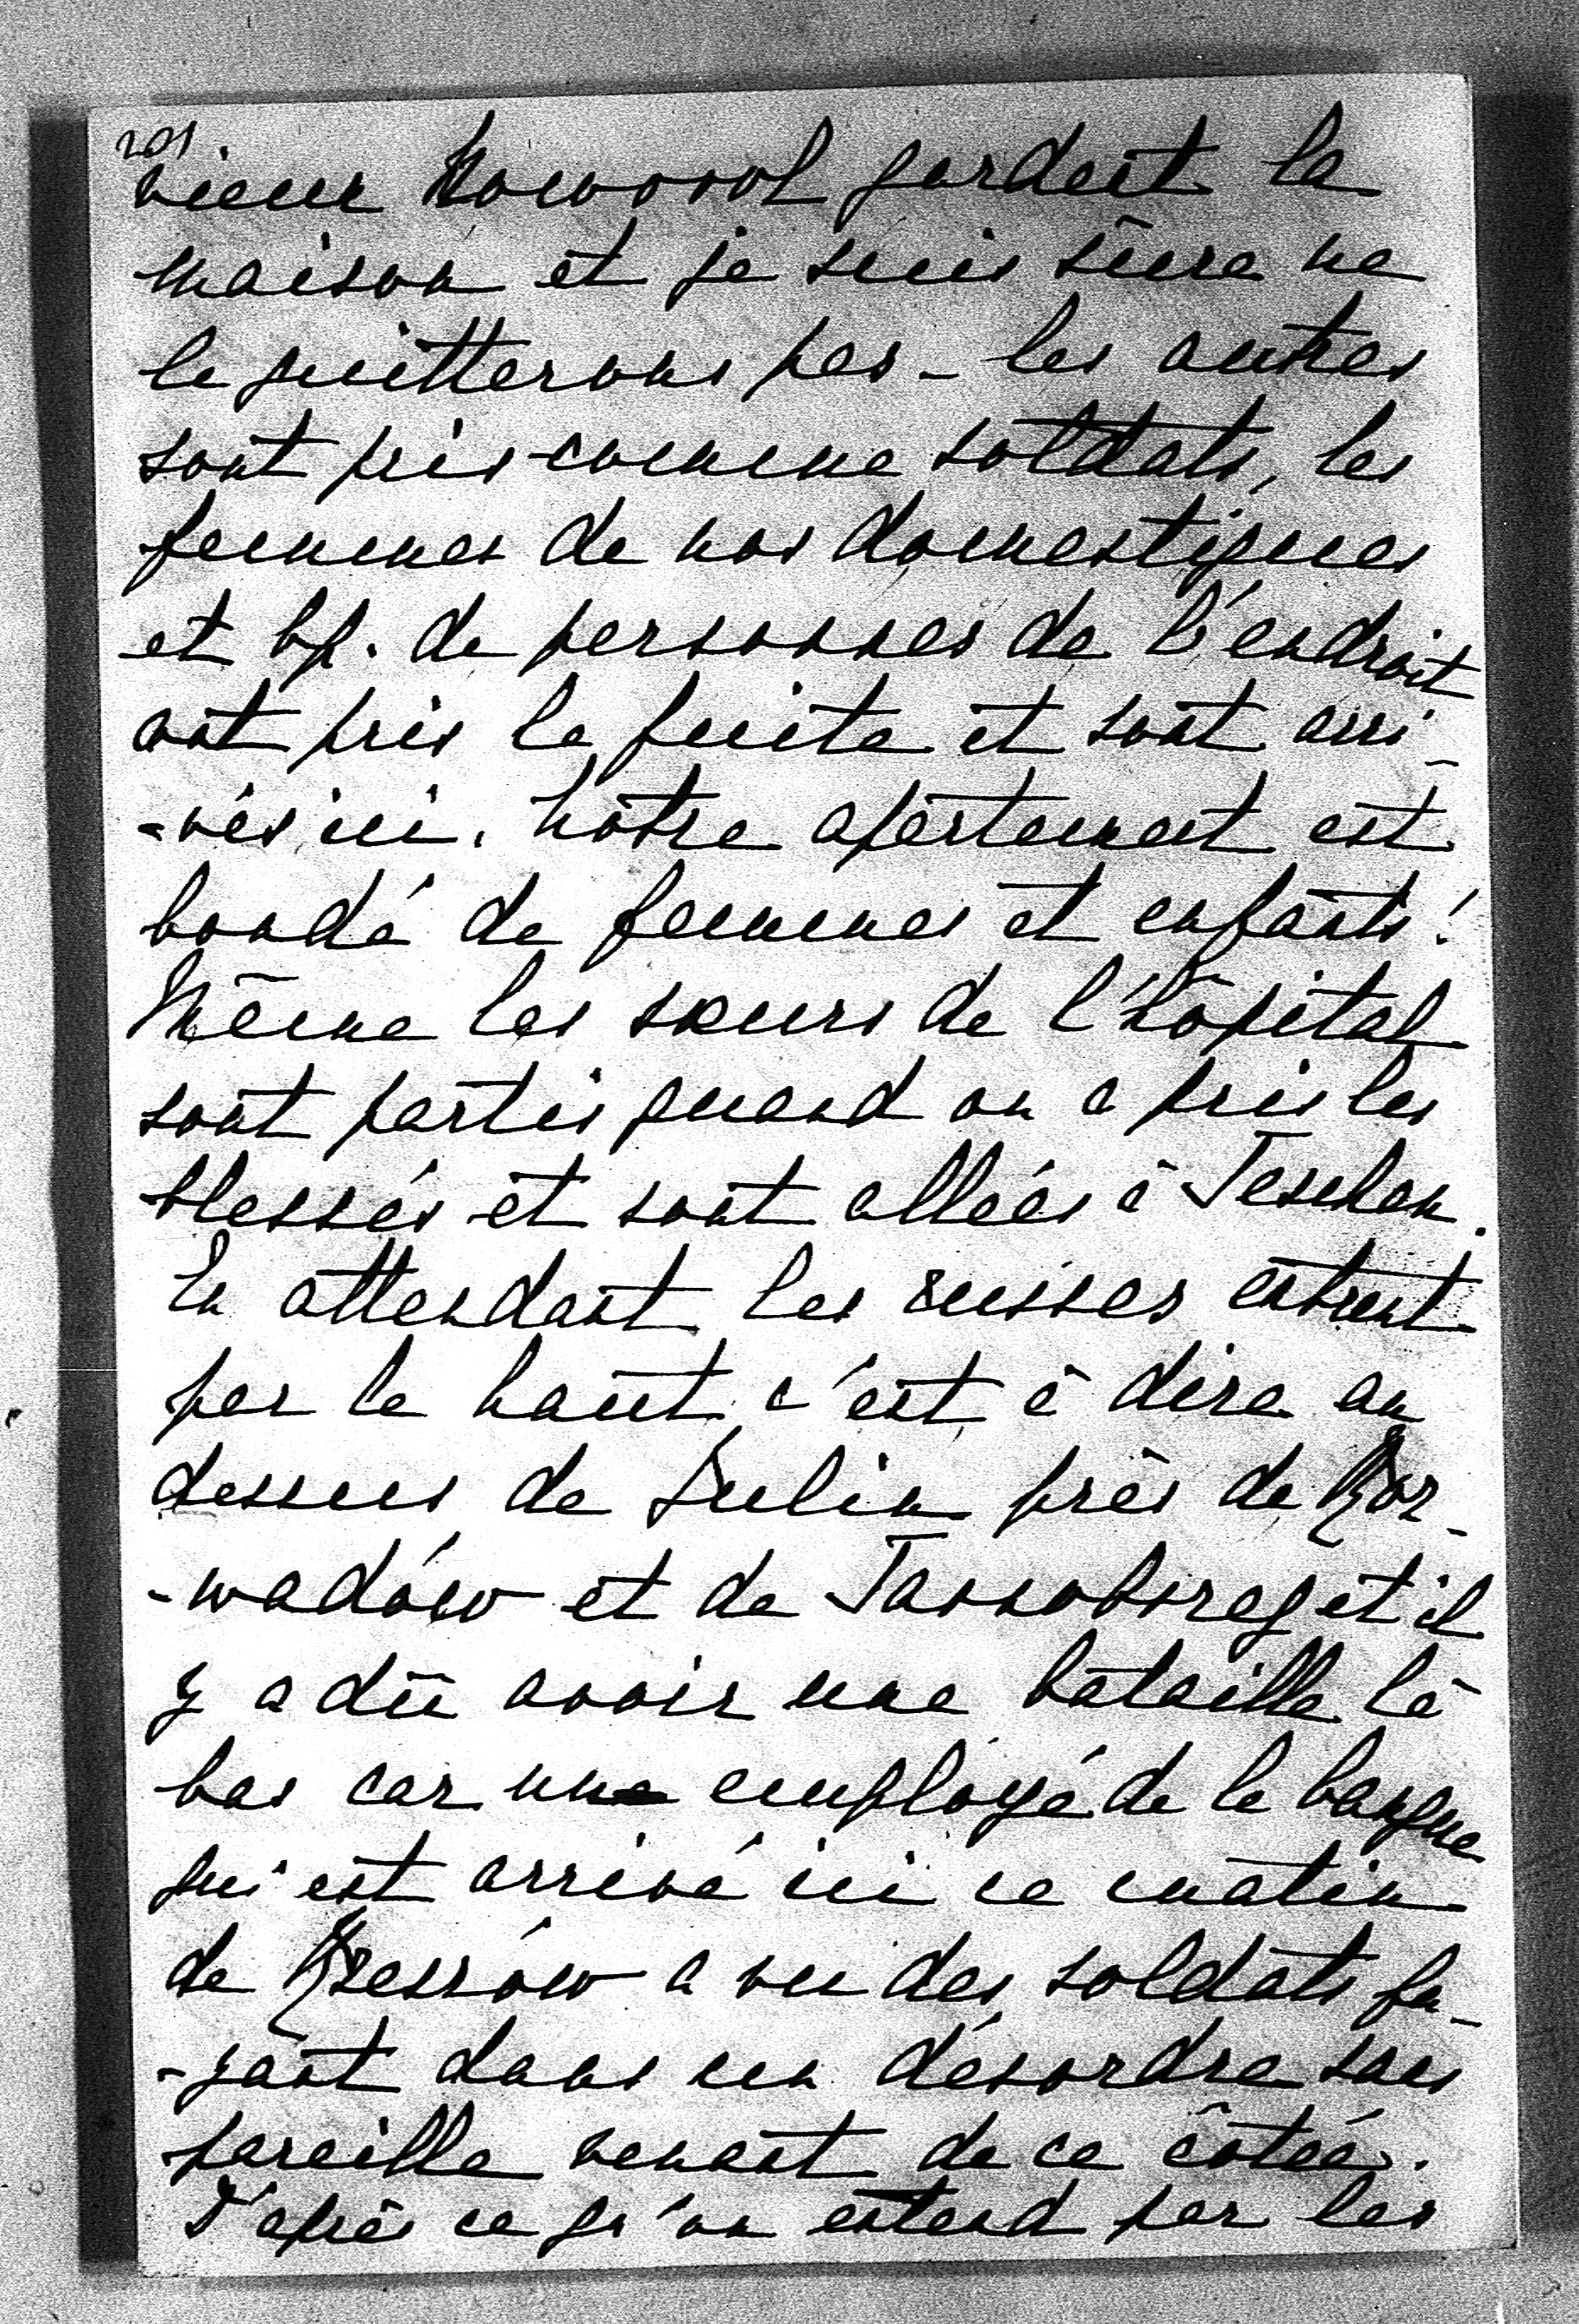 201
vieux Noworol gardent la
maison et je suis sûre ne
la quitterons pas - les autres
sont pris comme soldats, les
femmes de nos domestiques
et bp. de personnes de l'endroit
ont pris la fuite et sont arri-
-vés ici. Notre apartement est
bondé de femmes et enfants!
Même les sœurs de l'hôpital
sont partis quand on a pris les
blessés et sont allées à Teschen.
En attendant les russes entrent
par le haut c'est à dire au
dessus de Julin près de Roz-
-wadów et de Tarnobrzeg et il
y a dû avoir une bataille là
bas car un employé de la banque
qui est arrivé ici ce matin
de Rzeszów a vu des soldats fu-
-yant dans un désordre sans
pareille venant de ce côtée.
D'après ce qu'on entend par les